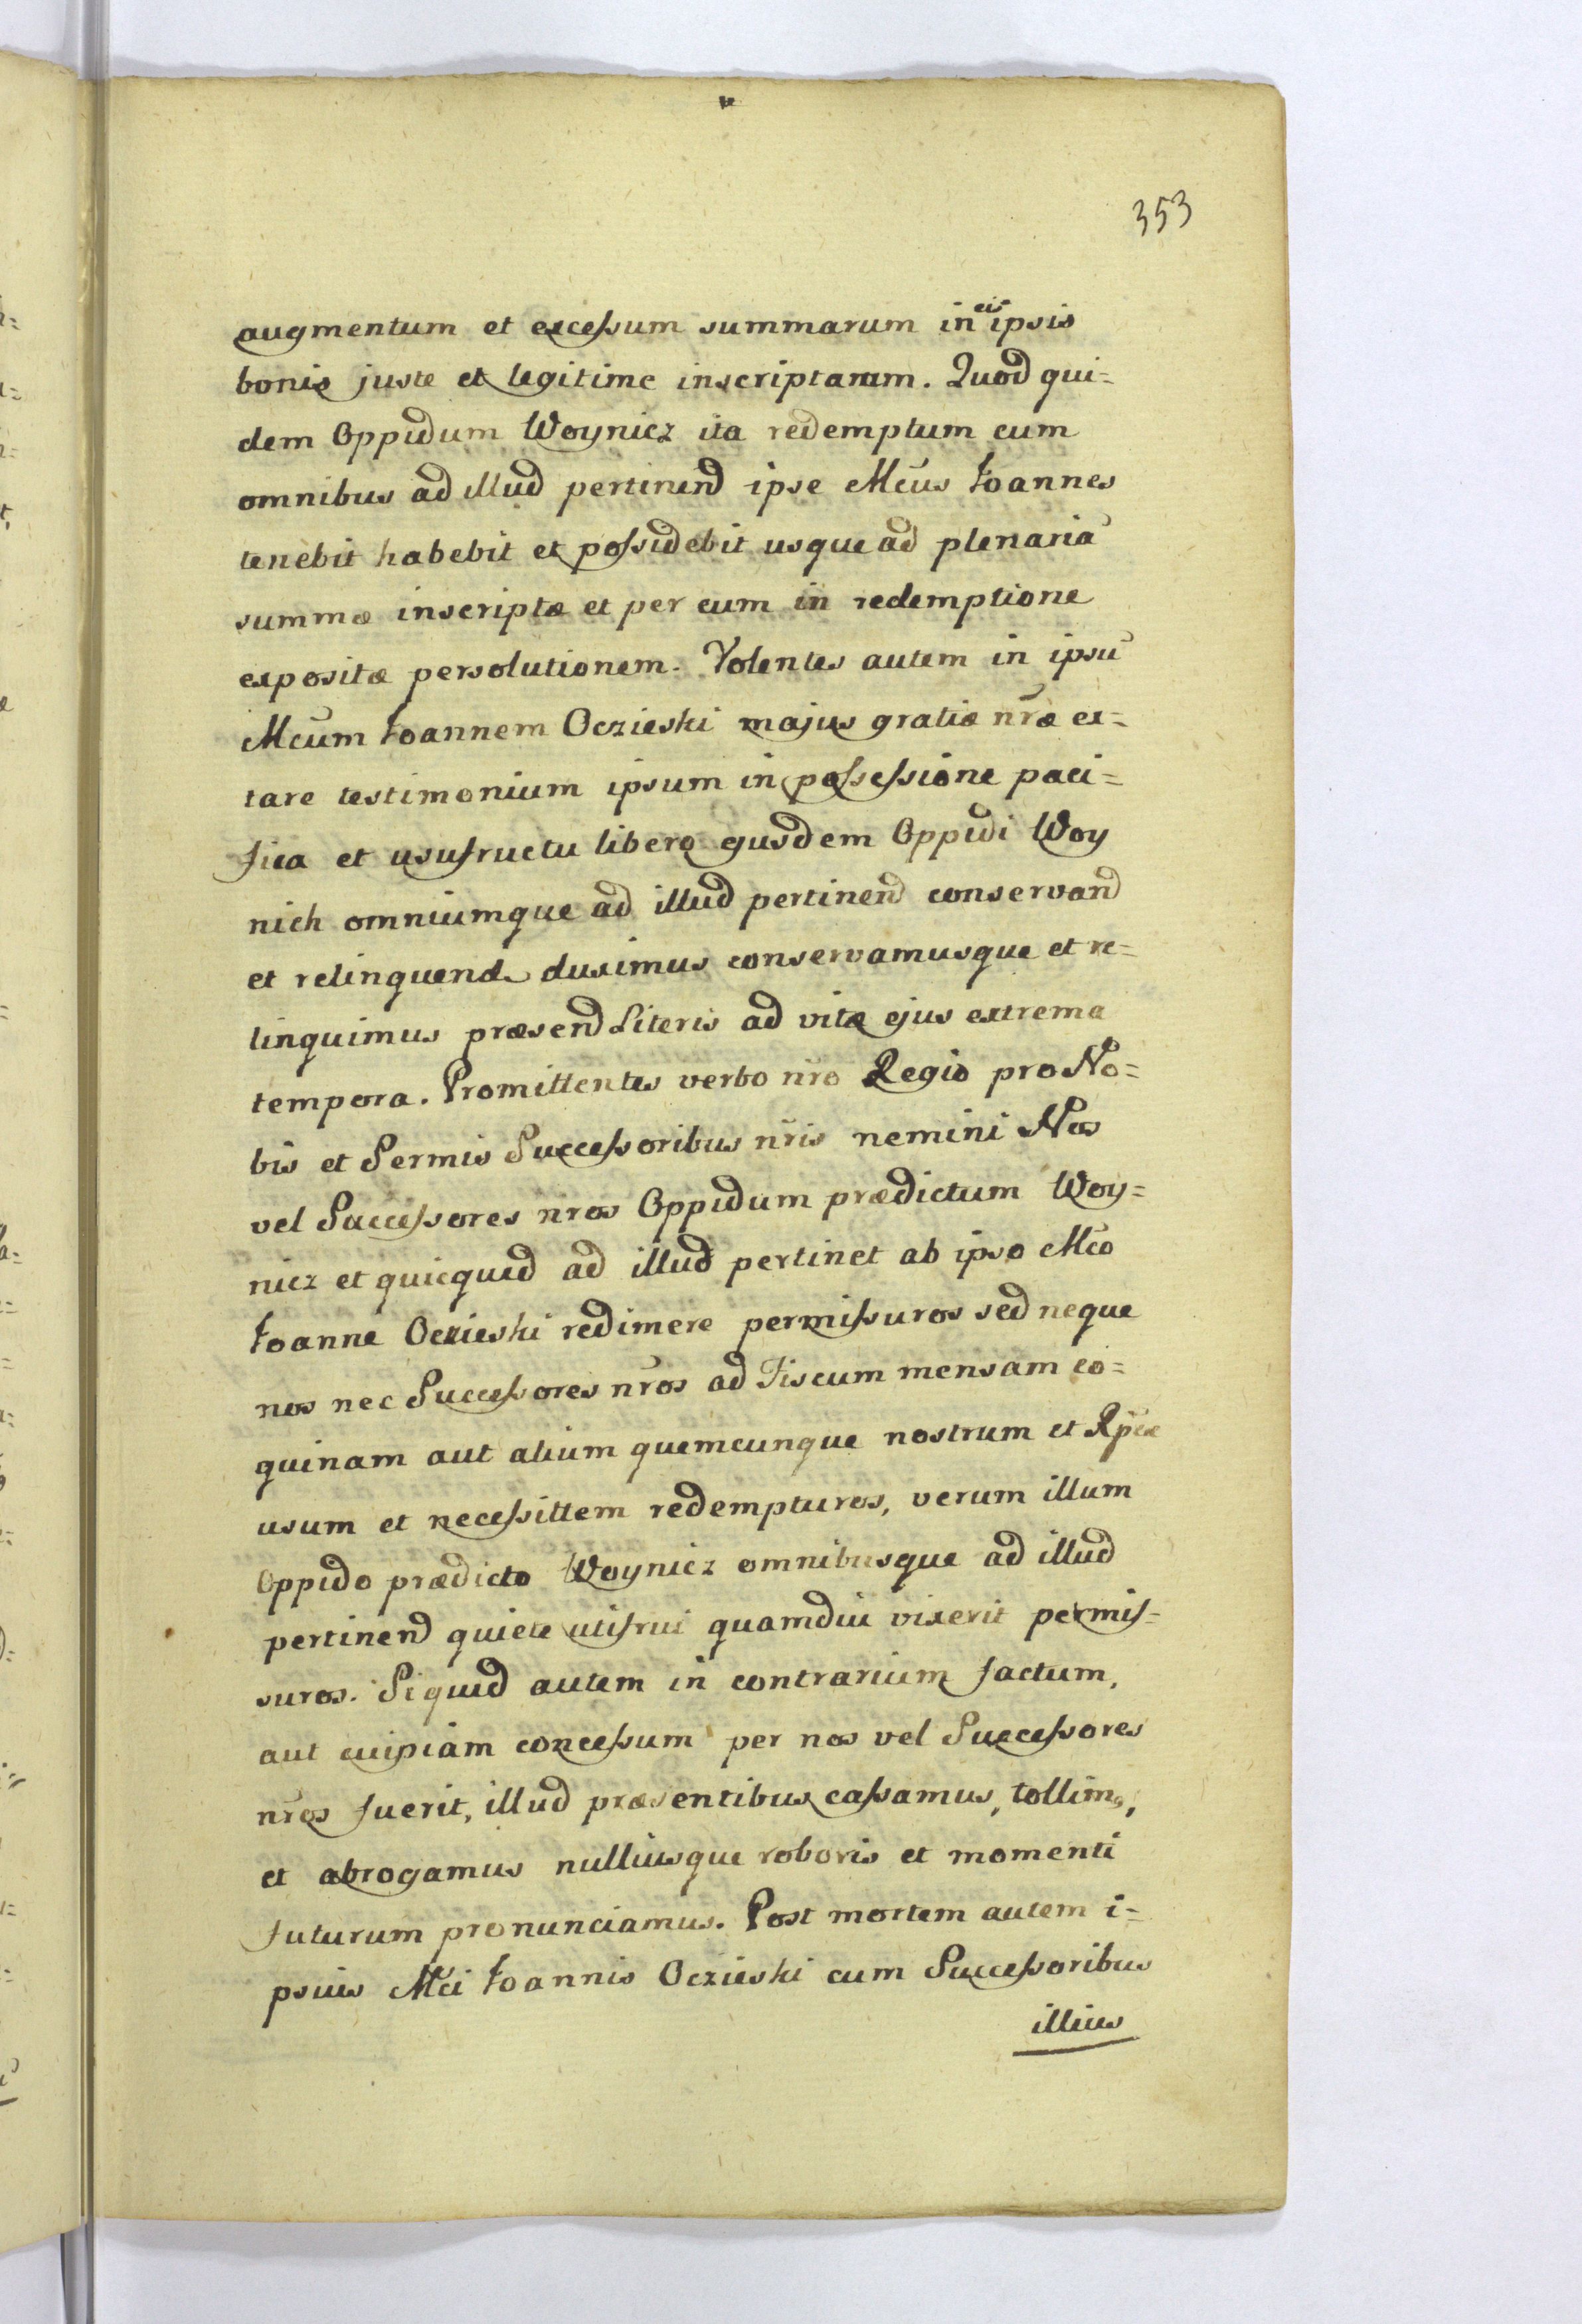 353
augmentum et excessum summarum in eis ipsis
bonis juste et legitime inscriptarum. Quod qui=
dem Oppidum Woynicz ita redemptum cum
omnibus ad illud pertinend ipse Mcus Joannes
tenebit habebit et possidebit usque ad plenariā
summæ inscriptæ et per eum in redemptione
expositæ persolutionem. Volentes autem in ipsū
Mcum Joannem Oczieski majus gratiæ nræ ex=
tare testimonium ipsum in possessione paci=
fica et usufructu libero ejusdem Oppidi Woy
nich omniumque ad illud pertinend conservand
et relinquend duximus conservamusque et re=
linquimus præsend Literis ad vitæ ejus extrema
tempora. Promittentes verbo nro Regio pro No=
bis et Sermis Successoribus nris nemini Nos
vel Successores nros Oppidum prædictum Woy=
nicz et quicquid ad illud pertinet ab ipso Mco
Joanne Oczieski redimere permissuros sed neque
nos nec Successores nros ad Fiscum mensam co=
quinam aut alium quemcunque nostrum et Rpcæ
usum et necessittem redempturos, verum illum
Oppido prædicto Woynicz omnibusque ad illud
pertinend quiete utifrui quamdiu vixerit permis=
suros. Siquid autem in contrarium factum,
aut cuipiam concessum per nos vel Successores
nros fuerit, illud præsentibus cassamus, tollim9,
et abrogamus nulliusque roboris et momenti
futurum pronunciamus. Post mortem autem i=
psius Mci Joannis Oczieski cum Successoribus
illius